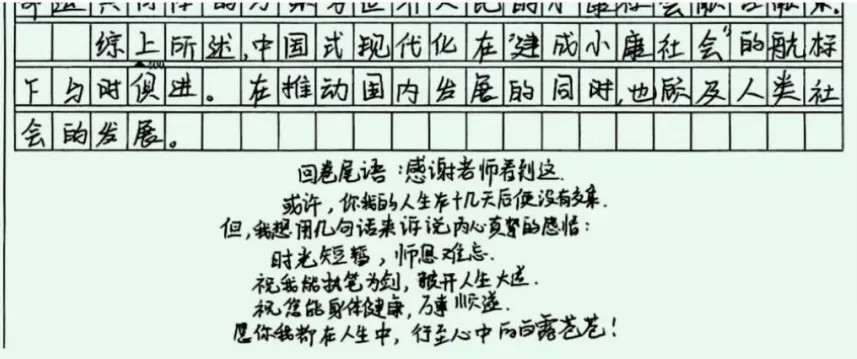 综上所述,中国式现代化在"建成小康社会"的航标
400
下与时俱进。在推动国内发展的同时,也顾及人类社
会的发展。
回卷尾语:感谢老师看到这.
或许,你我的人生在十几天后便没有交集.
但,我想用几句话来诉说内心真挚的感情:
时光短暂,师恩难忘.
祝我能执笔为剑,破开人生大道.
祝您能身体健康,万事顺遂.
愿你我都在人生中,行至心中的白露苍苍!